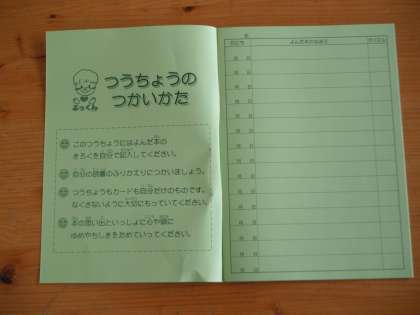 つうちょうの
つかいかた
ぶっくん
このつうちょうにはよんだ本の
きろくを自分で記入してください。
自分の読書のふりかえりにつかいましょう。
つうちょうもカードも自分だけのものです。
なくさないように大切にもっていてください。
本の思い出といっしょに心や頭に
ゆめやちしきをためていってください。
よんだ本のなまえ
月 日
月 日
月 日
月 日
月 日
月 日
月 日
月 日
月 日
月 日
月 日
月 日
月 日